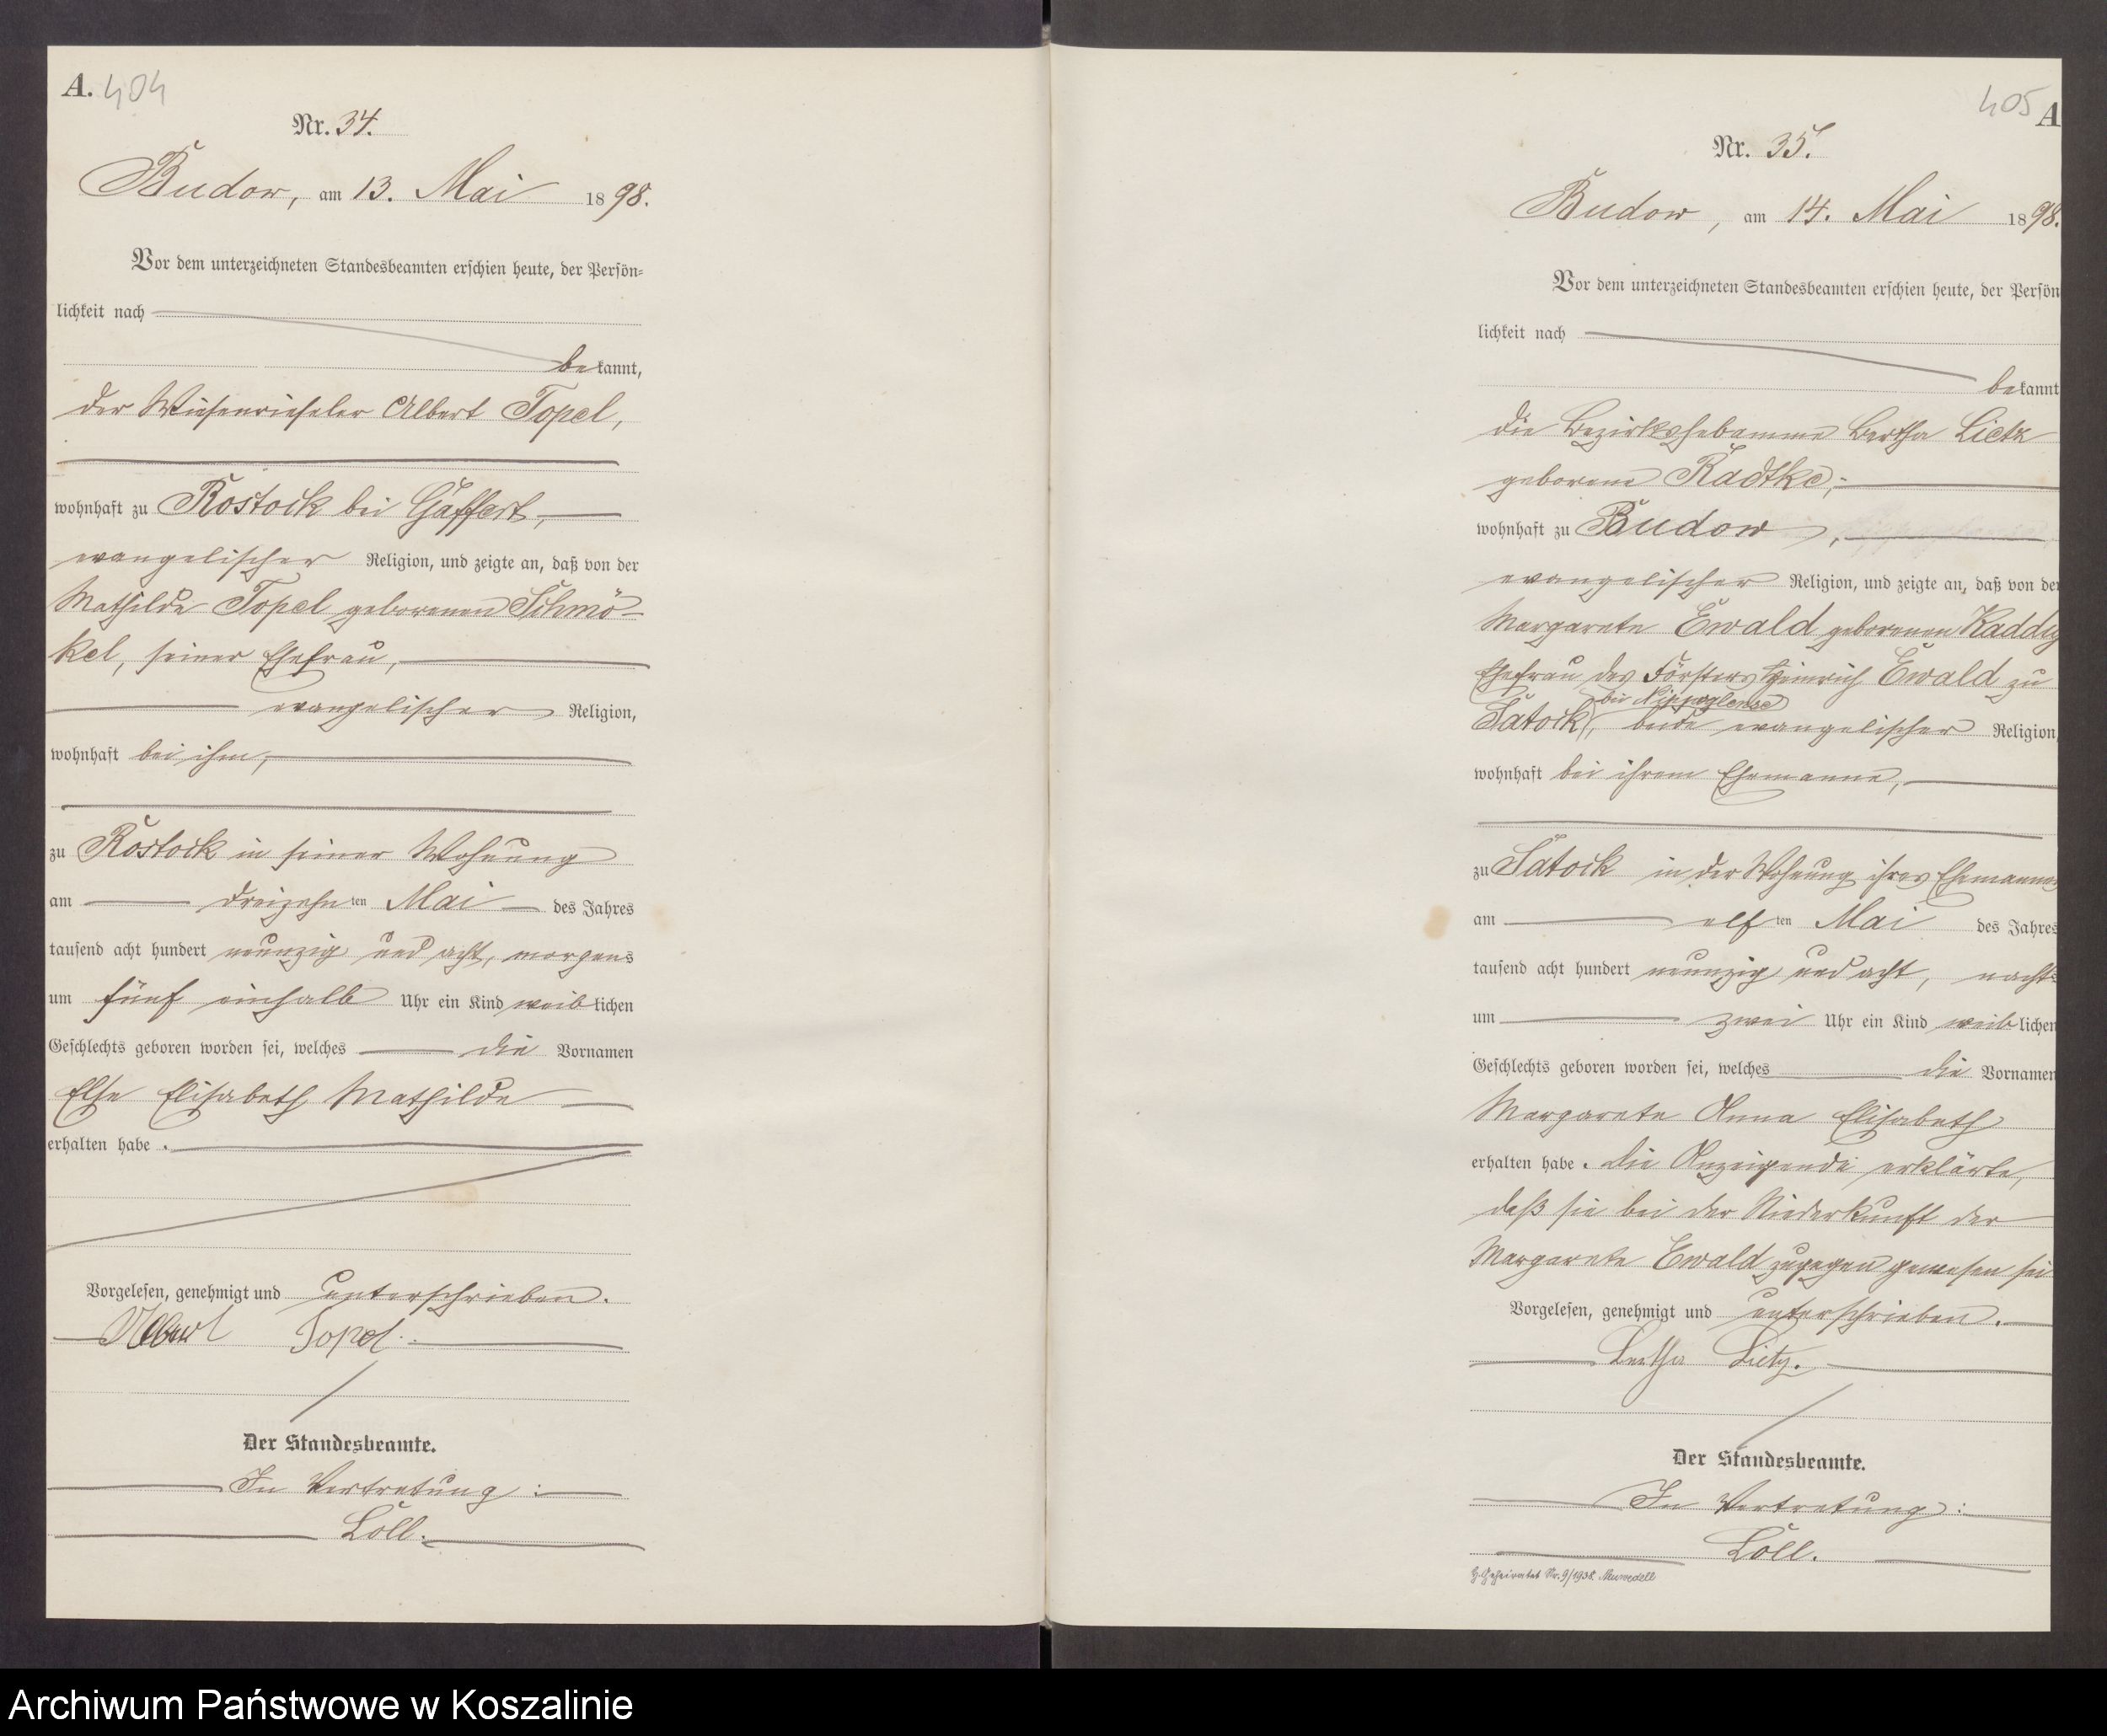 A. 404
Nr. 34.
Budow, am 13. Mai 1898.
Vor dem unterzeichneten Standesbeamten erschien heute, der Persön-
lichkeit nach
bekannt,
der Wiesenrieseler Albert Topel,
wohnhaft zu Rostock bei Gaffert,
evangelischer Religion, und zeigte an, daß von der
Mathilde Topel geborenen Schmö-
kel, seiner Ehefrau,
evangelischer Religion,
wohnhaft bei ihm,
zu Rostock in seiner Wohnung
am dreizehnten Mai des Jahres
tausend acht hundert neunzig und acht, morgens
um fünf einhalb Uhr ein Kind weiblichen
Geschlechts geboren worden sei, welches die Vornamen
Else Elisabeth Mathilde
erhalten habe.
Vorgelesen, genehmigt und unterschrieben.
Albert Topel.
Der Standesbeamte.
In Vertretung:
Loll.
405 A
Nr. 35.
Budow, am 14. Mai 1898.
Vor dem unterzeichneten Standesbeamten erschien heute, der Persön
lichkeit nach
bekannt
die Bezirkshebamme Bertha Lietz
geborene Radtke,
wohnhaft zu Budow,
evangelischer Religion, und zeigte an, daß von der
Margarete Ewald geborenen
Ehefrau des Försters Heinrich Ewald zu
bei Nippoglense
Satock, beide evangelischer Religion,
wohnhaft bei ihrem Ehemanne,
zu Satock in der Wohnung ihres Ehemannes
am elften Mai des Jahres
tausend acht hundert neunzig und acht, nachts
um zwei Uhr ein Kind weiblichen
Geschlechts geboren worden sei, welches die Vornamen
Margarete Anna Elisabeth
erhalten habe. Die Anzeigende erklärte,
daß sie bei der Niederkunft der
Margarete Ewald zugegen gewesen sei
Vorgelesen, genehmigt und unterschrieben.
Bertha Lietz.
Der Standesbeamte.
In Vertretung:
Loll.
Geheiratet Nr. 9/1938 Neuwedell
Archiwum Państwowe w Koszalinie